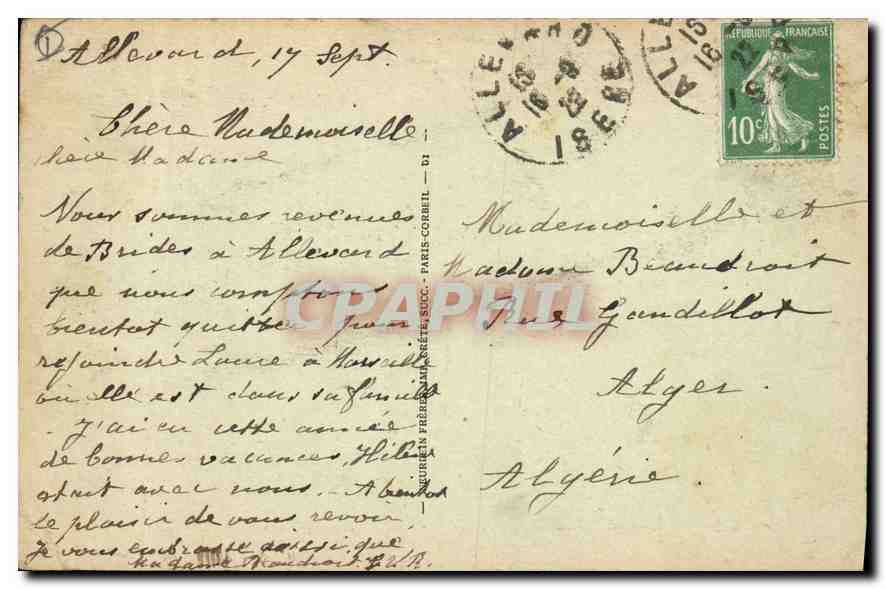 Allevard, 17 Sept.
Chère Mademoiselle
chère Madame
Nous sommes revenues
de Brides à Allevard
que nous comptons
bientot quitter pour
rejoindre Laure à Marseille
où elle est dans sa famille
- J'ai eu cette année
de bonnes vacances, Hélène
était avec nous. - A bientot
le plaisir de vous revoir,
Je vous embrasse aussi que
Madame Beaudroit.
NEURDEIN FRÈRES, IMP. CRÉTE, SUCC. - PARIS-CORBEIL - DI
ALLEVARD
ISERE
RÉPUBLIQUE FRANÇAISE
10c
POSTES
CPAPHIL
Mademoiselle et
Madame Beaudroit
Rue Gandillot
Alger.
Algérie.